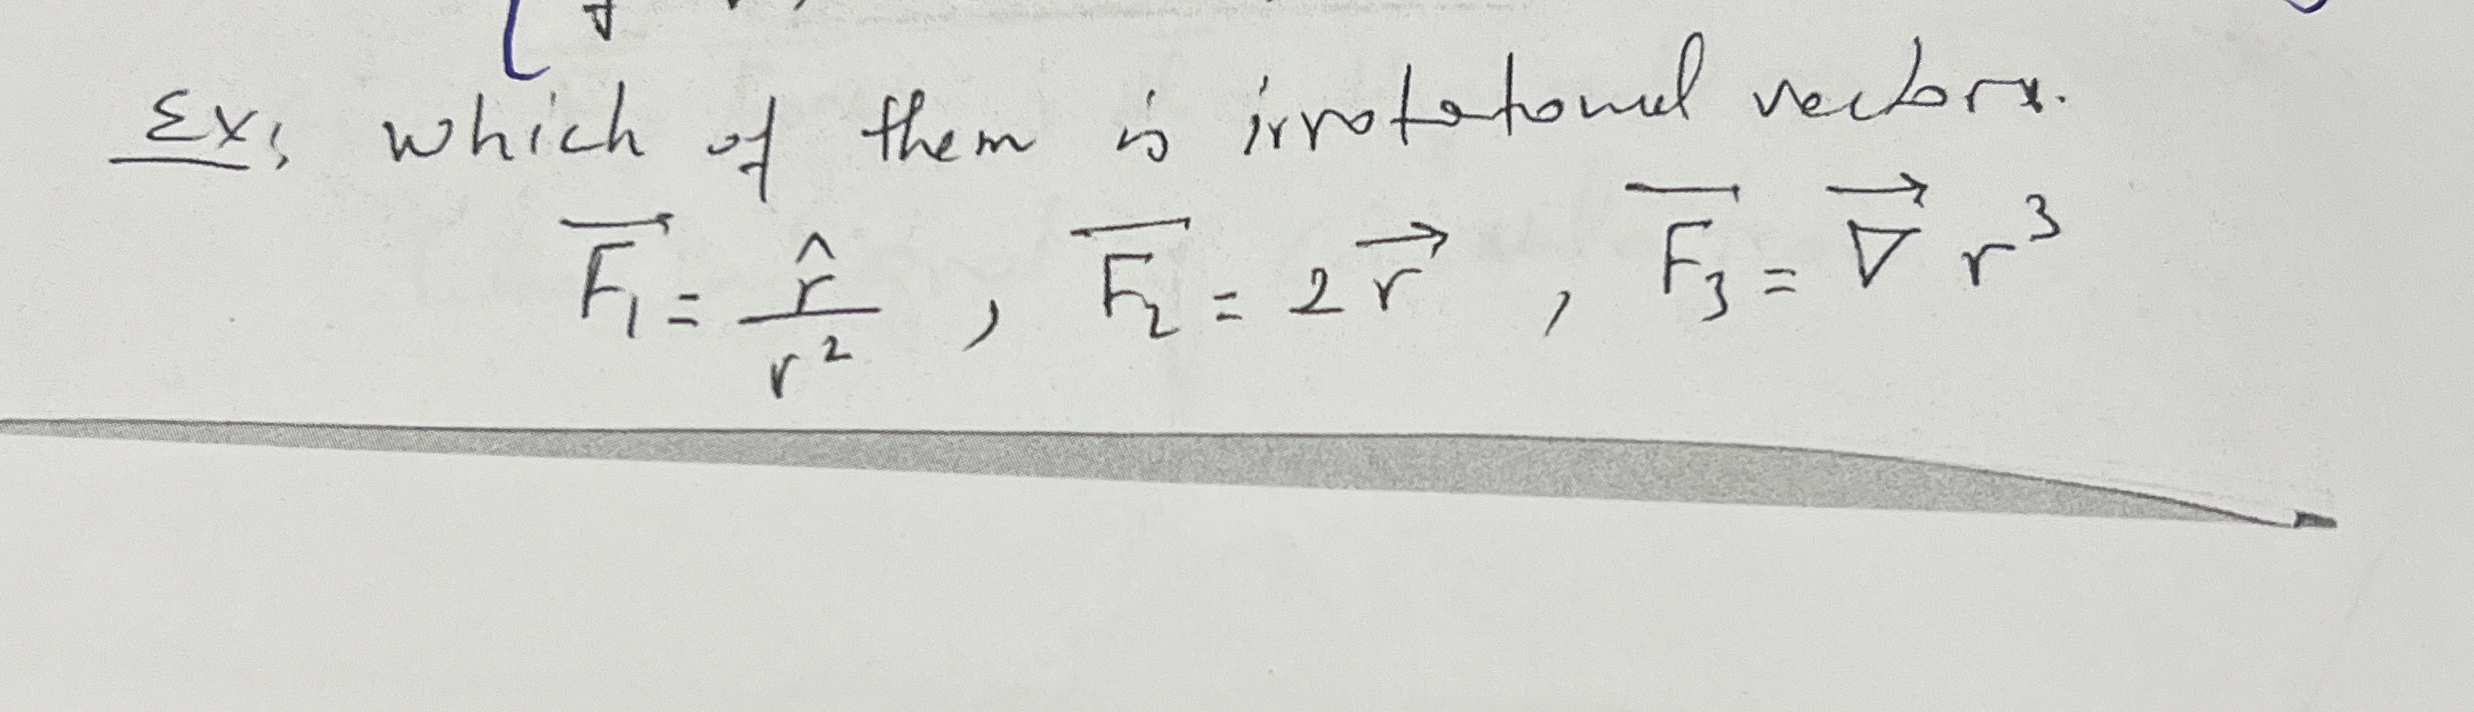 Ex: which of them is irrotational vectors.
F₁⃗ = r̂ / r² , F₂⃗ = 2 r⃗ , F₃⃗ = ∇⃗ r³